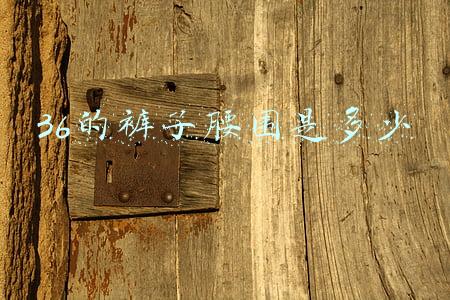 36的裤子腰围是多少